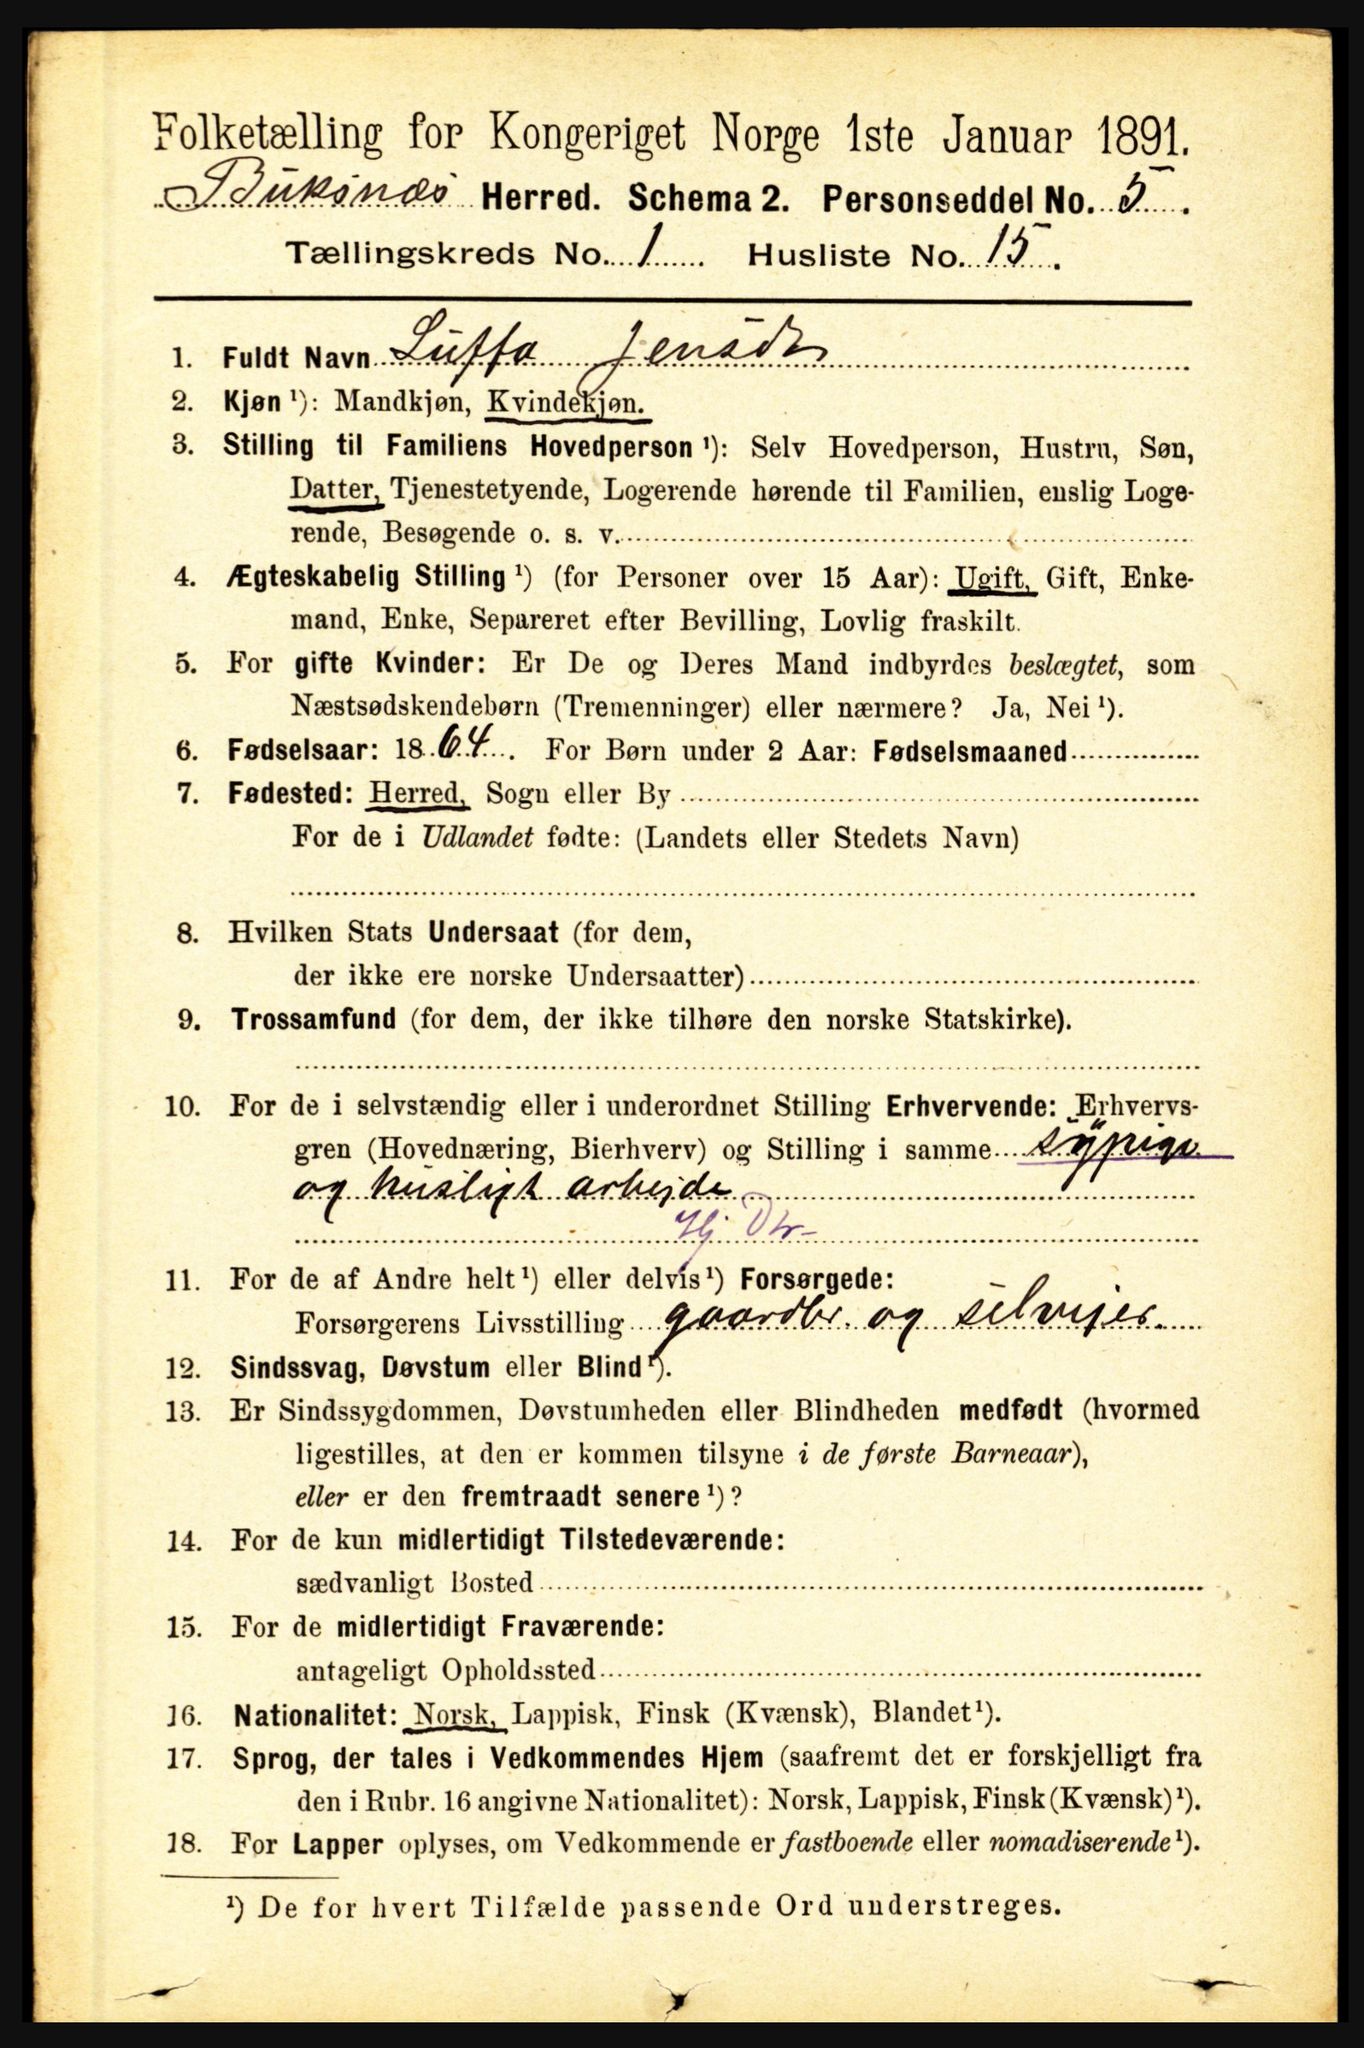 Folketælling for Kongeriget Norge 1ste Januar 1891.
Buksnæs Herred. Schema 2. Personseddel No. 5.
Tællingskreds No. 1 Husliste No. 15.
1. Fuldt Navn Luffa Jensdtr
2. Kjøn ¹): Mandkjøn, Kvindekjøn.
3. Stilling til Familiens Hovedperson ¹): Selv Hovedperson, Hustru, Søn,
Datter, Tjenestetyende, Logerende hørende til Familien, enslig Loge-
rende, Besøgende o. s. v.
4. Ægteskabelig Stilling ¹) (for Personer over 15 Aar): Ugift, Gift, Enke-
mand, Enke, Separeret efter Bevilling, Lovlig fraskilt.
5. For gifte Kvinder: Er De og Deres Mand indbyrdes beslægtet, som
Næstsødskendebørn (Tremenninger) eller nærmere? Ja, Nei ¹).
6. Fødselsaar: 1864. For Børn under 2 Aar: Fødselsmaaned
7. Fødested: Herred, Sogn eller By
For de i Udlandet fødte: (Landets eller Stedets Navn)
8. Hvilken Stats Undersaat (for dem,
der ikke ere norske Undersaatter)
9. Trossamfund (for dem, der ikke tilhøre den norske Statskirke).
10. For de i selvstændig eller i underordnet Stilling Erhvervende: Erhvervs-
gren (Hovednæring, Bierhverv) og Stilling i samme sypige
og husligt arbejde
Hj Dtr
11. For de af Andre helt ¹) eller delvis ¹) Forsørgede:
Forsørgerens Livsstilling gaardbr. og selvejer.
12. Sindssvag, Døvstum eller Blind ¹).
13. Er Sindssygdommen, Døvstumheden eller Blindheden medfødt (hvormed
ligestilles, at den er kommen tilsyne i de første Barneaar),
eller er den fremtraadt senere ¹)?
14. For de kun midlertidigt Tilstedeværende:
sædvanligt Bosted
15. For de midlertidigt Fraværende:
antageligt Opholdssted
16. Nationalitet: Norsk, Lappisk, Finsk (Kvænsk), Blandet ¹).
17. Sprog, der tales i Vedkommendes Hjem (saafremt det er forskjelligt fra
den i Rubr. 16 angivne Nationalitet): Norsk, Lappisk, Finsk (Kvænsk) ¹).
18. For Lapper oplyses, om Vedkommende er fastboende eller nomadiserende ¹).
¹) De for hvert Tilfælde passende Ord understreges.